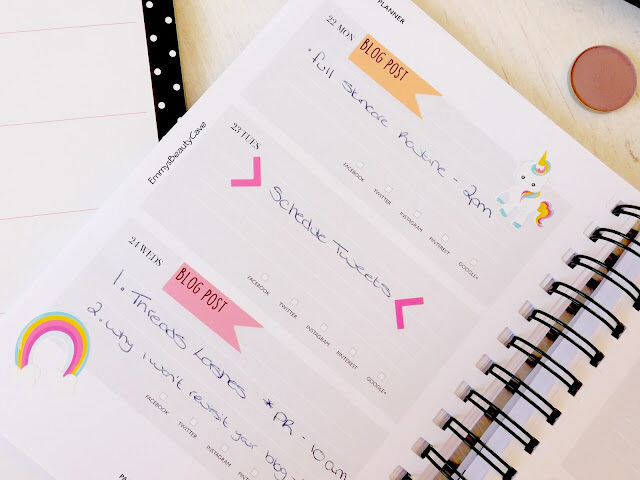 PLANNER
22 MON
BLOG POST
• full skincare Routine - 2pm
FACEBOOK
TWITTER
INSTAGRAM
PINTEREST
GOOGLE+
EmmysBeautyCave
23 TUES
Schedule Tweets
FACEBOOK
TWITTER
INSTAGRAM
PINTEREST
GOOGLE+
24 WEDS
BLOG POST
1. Threads Lashes * PR - 10am
2. Why I won't revisit your blog -
FACEBOOK
TWITTER
INSTAGRAM
PINTEREST